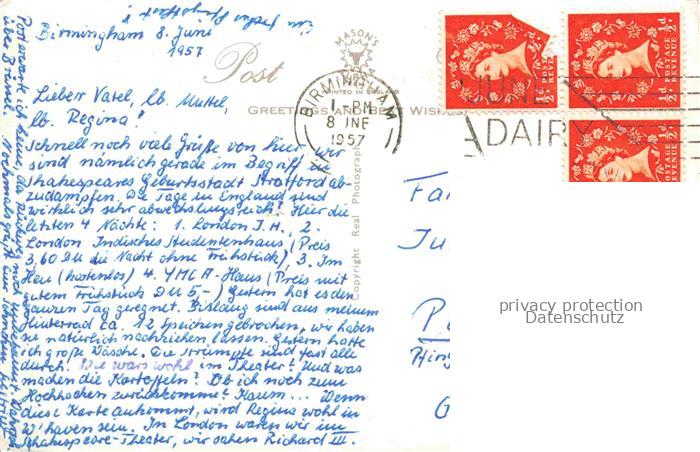 Birmingham 8. Juni
1957
Lieber Vatel, lb. Muttel,
lb. Regina!
Schnell noch viele Grüße von hier, wir
sind nämlich gerade im Begriff in
Shakespeares Geburtsstadt Stratford ab-
zudampfen. Die Tage in England sind
wirklich sehr abwechslungsreich! Hier die
letzten 4 Nächte: 1. London J.H. 2.
London Indisches Studentenhaus (Preis
3,60 DM die Nacht ohne Frühstück), 3. Im
Heu (kostenlos) 4. YMCA-Haus (Preis mit
gutem Frühstück DM 5,-) Gestern hat es den
ganzen Tag geregnet. Bislang sind aus meinem
Hinterrad ca. 12 Speichen gebrochen, wir haben
sie natürlich nachziehen lassen. Gestern hatte
ich große Wäsche. Die Strümpfe sind fast alle
durch. Wie wars wohl im Theater? Und was
machen die Kartoffeln? Ob ich noch zum
Hochhacken zurückkomme? Kaum... Wenn
diese Karte ankommt, wird Regina wohl in
W'haven sein. In London waren wir im
Shakespeare-Theater, wir sahen Richard III.
über Brüssel. Nochmals
Post
MASON'S
PRINTED IN ENGLAND
GREETINGS AND BEST WISHES
Copyright Real Photograph
BIRMINGHAM
1-PM
8 JNE
1957
JUNE
DAIRY
½d POSTAGE REVENUE ½d
½d POSTAGE REVENUE ½d
½d POSTAGE REVENUE ½d
Fa
Ju
P
Pfing
G
privacy protection
Datenschutz